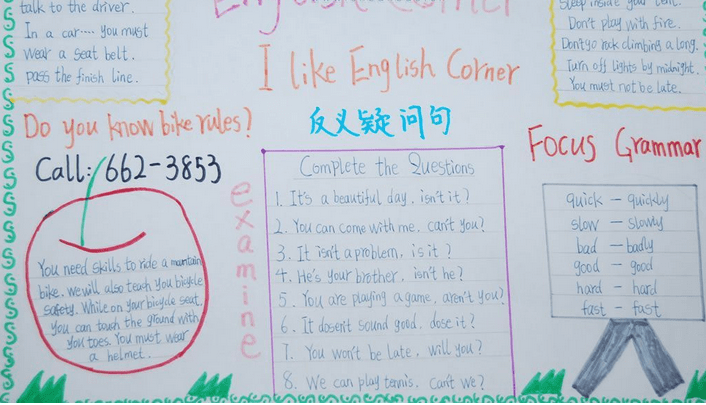 talk to the driver.
In a car.... you must
wear a seat belt.
pass the finish line.
English Corner
Sleep inside your tent.
Don't play with fire.
Don't go rock climbing a long.
Turn off lights by midnight.
You must not be late.
I like English Corner
Do you know bike rules?
Call: 662-3853
You need skills to ride a mountain
bike. we will also teach you bicycle
safety. While on your bicycle seat,
you can touch the ground with
you toes. You must wear
a helmet.
examine
反义疑问句
Complete the Questions
1. It's a beautiful day, isn't it?
2. You can come with me, can't you?
3. It isn't a problem, is it?
4. He's your brother, isn't he?
5. You are playing a game, aren't you?
6. It dosen't sound good, dose it?
7. You won't be late, will you?
8. We can play tennis, can't we?
Focus Grammar
quick — quickly
slow — slowly
bad — badly
good — good
hard — hard
fast — fast